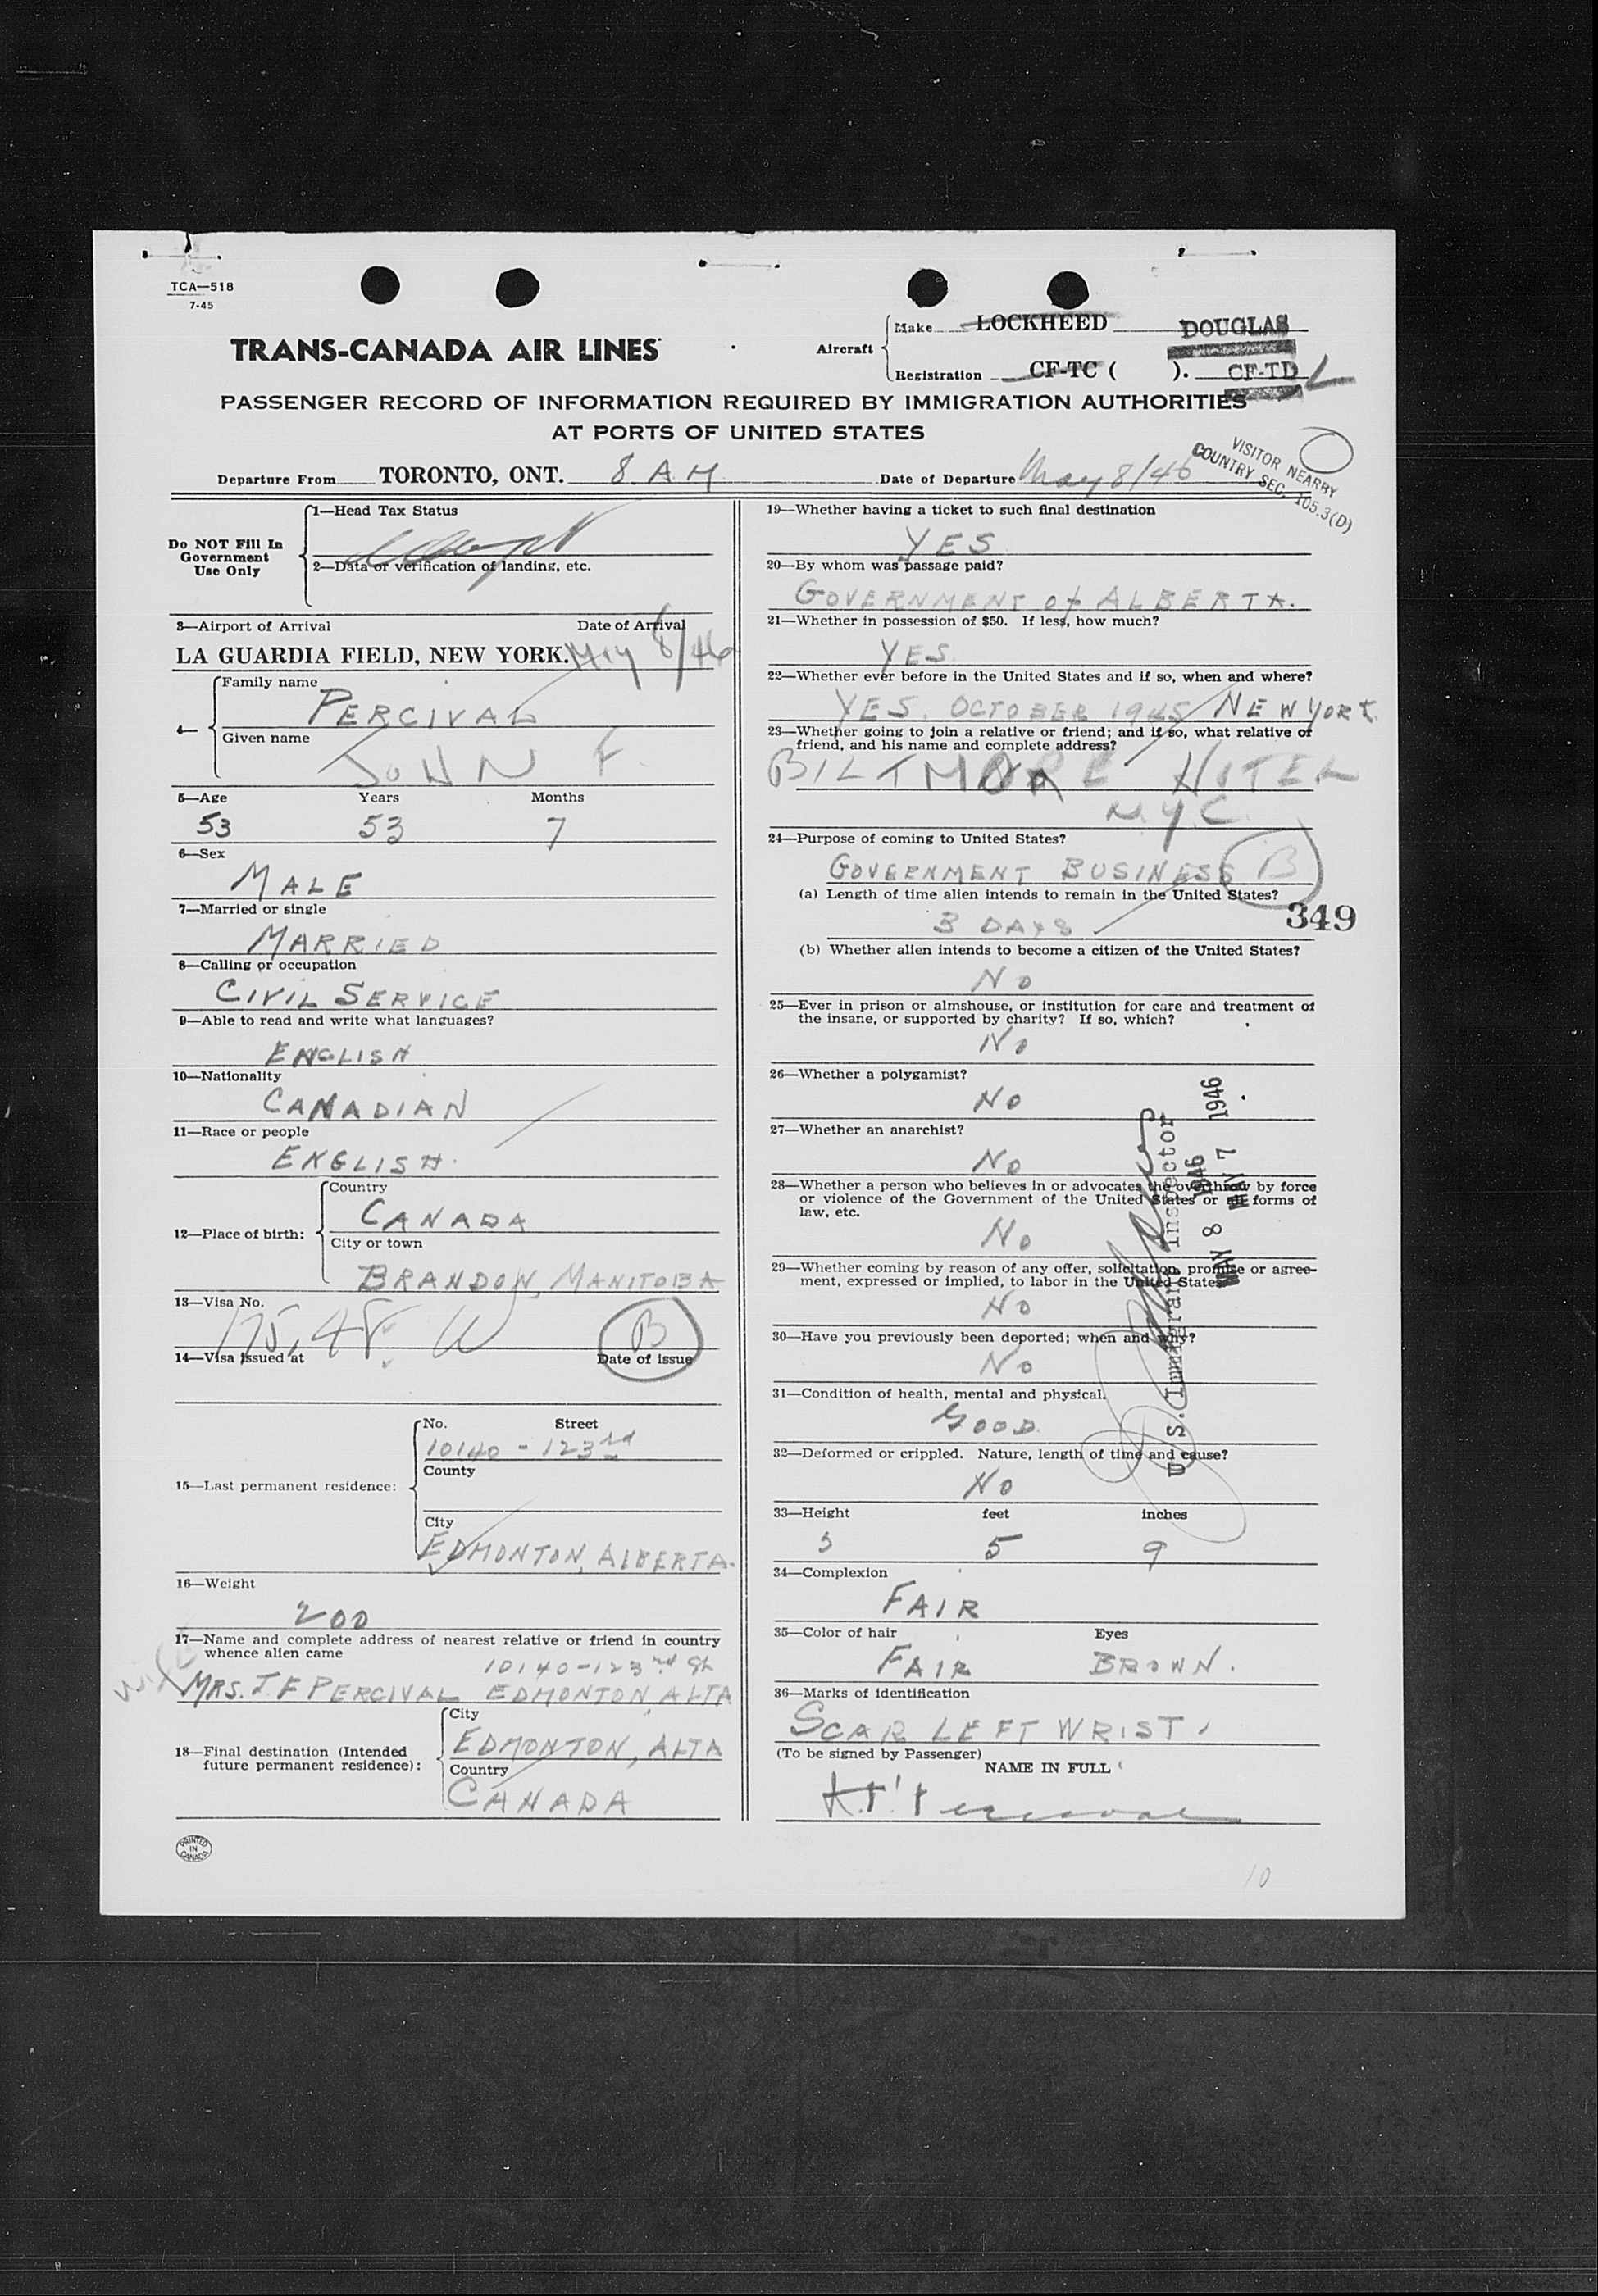 TCA—518
7-45
TRANS-CANADA AIR LINES
Aircraft
Make LOCKHEED DOUGLAS
Registration CF-TC ( ). CF-TD L
PASSENGER RECORD OF INFORMATION REQUIRED BY IMMIGRATION AUTHORITIES
AT PORTS OF UNITED STATES
Departure From TORONTO, ONT. 8 A.M. Date of Departure May 8/46
VISITOR NEARBY
COUNTRY SEC. 105.3(D)
Do NOT Fill In
Government
Use Only
1—Head Tax Status
2—Data or verification of landing, etc.
3—Airport of Arrival Date of Arrival
LA GUARDIA FIELD, NEW YORK. May 8/46
4—
Family name
PERCIVAL
Given name
JOHN F.
5—Age Years Months
53 53 7
6—Sex
MALE
7—Married or single
MARRIED
8—Calling or occupation
CIVIL SERVICE
9—Able to read and write what languages?
ENGLISH
10—Nationality
CANADIAN
11—Race or people
ENGLISH.
12—Place of birth:
Country
CANADA
City or town
BRANDON, MANITOBA
13—Visa No.
B
14—Visa issued at Date of issue
15—Last permanent residence:
No. Street
10140 - 123rd
County
City
EDMONTON, ALBERTA.
16—Weight
200
17—Name and complete address of nearest relative or friend in country
whence alien came
10140-123rd St
wife MRS. J F PERCIVAL EDMONTON, ALTA
18—Final destination (Intended
future permanent residence):
City
EDMONTON, ALTA
Country
CANADA
PRINTED
IN
CANADA
19—Whether having a ticket to such final destination
YES
20—By whom was passage paid?
GOVERNMENT of ALBERTA.
21—Whether in possession of $50. If less, how much?
YES
22—Whether ever before in the United States and if so, when and where?
YES. OCTOBER 1945 NEW YORK.
23—Whether going to join a relative or friend; and if so, what relative or
friend, and his name and complete address?
BILTMORE HOTEL
N.Y.C.
24—Purpose of coming to United States?
GOVERNMENT BUSINESS B
(a) Length of time alien intends to remain in the United States?
349
3 DAYS
(b) Whether alien intends to become a citizen of the United States?
No
25—Ever in prison or almshouse, or institution for care and treatment of
the insane, or supported by charity? If so, which?
No
26—Whether a polygamist?
No
27—Whether an anarchist?
No
28—Whether a person who believes in or advocates the overthrow by force
or violence of the Government of the United States or all forms of
law, etc.
No
29—Whether coming by reason of any offer, solicitation, promise or agree-
ment, expressed or implied, to labor in the United States
No
30—Have you previously been deported; when and why?
No
31—Condition of health, mental and physical.
GOOD.
32—Deformed or crippled. Nature, length of time and cause?
No
U.S. Immigrant Inspector
MAY 8 1946
MAY 7 1946
33—Height feet inches
5 9
34—Complexion
FAIR
35—Color of hair Eyes
FAIR BROWN.
36—Marks of identification
SCAR LEFT WRIST.
(To be signed by Passenger)
NAME IN FULL
Percival
10